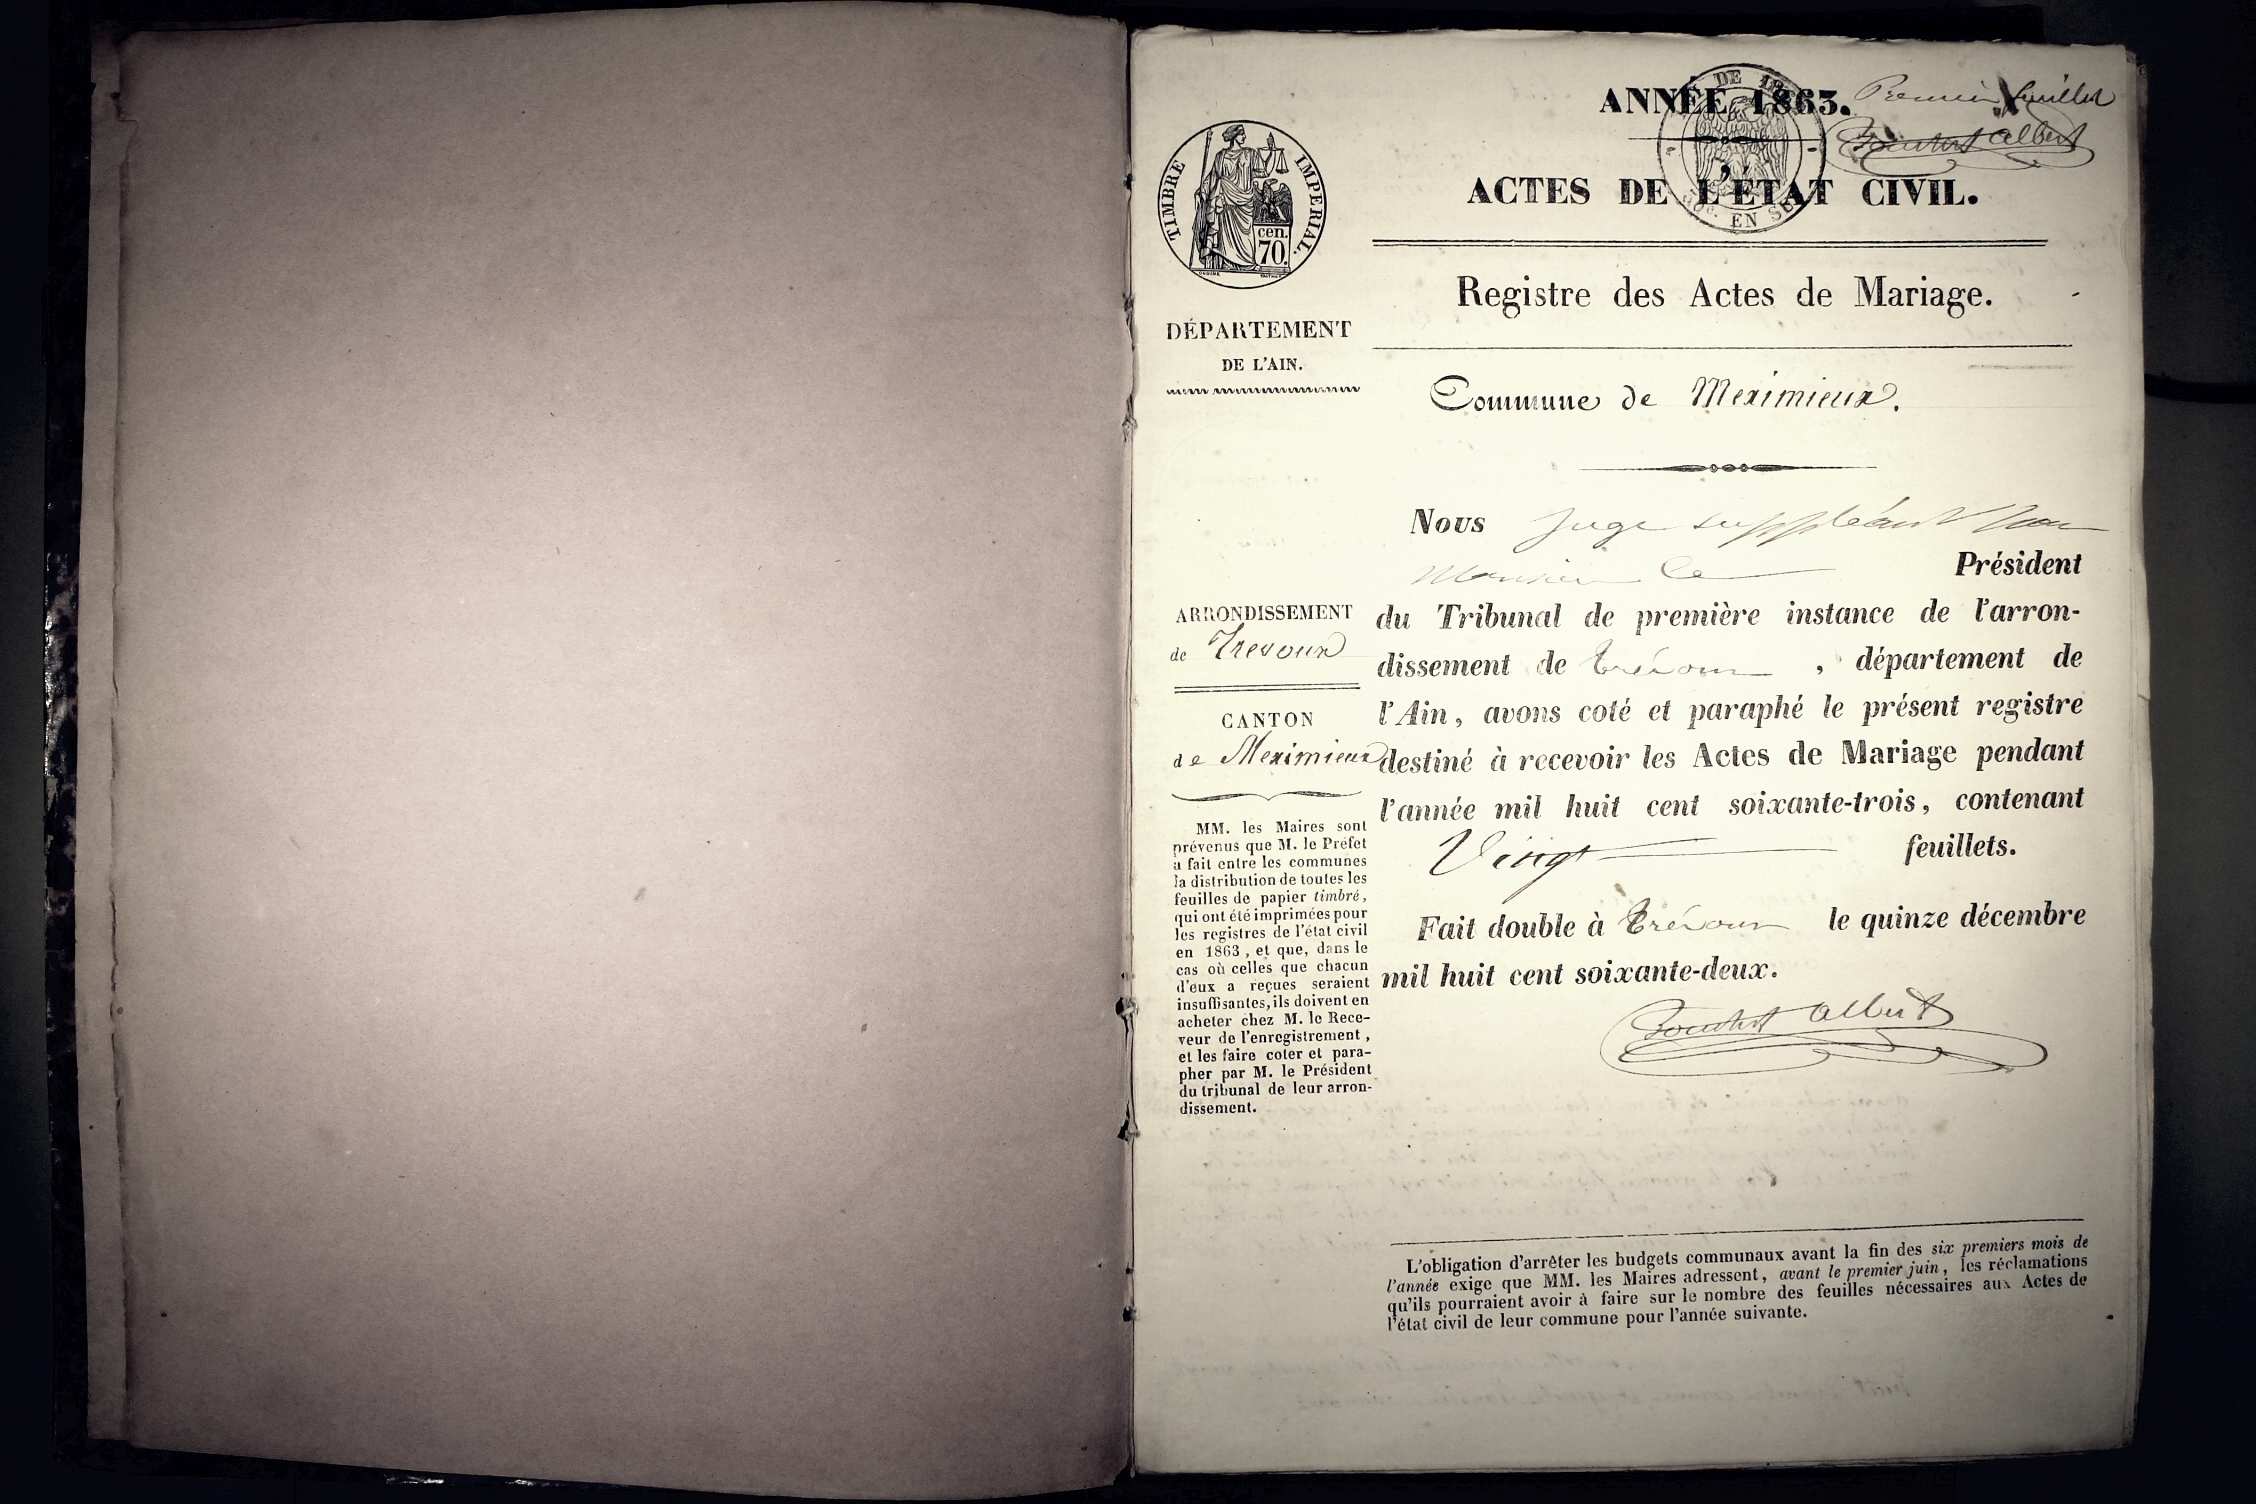 ANNÉE 1863.
Premier feuillet
Albert
DE 18
EN SUS
ACTES DE L'ÉTAT CIVIL.
TIMBRE IMPERIAL.
cen.
70.
Registre des Actes de Mariage.
DÉPARTEMENT
DE L'AIN.
Commune de Meximieux.
Nous Juge suppléant pour
Monsieur le Président
du Tribunal de première instance de l'arron-
dissement de Trévoux, département de
l'Ain, avons coté et paraphé le présent registre
destiné à recevoir les Actes de Mariage pendant
l'année mil huit cent soixante-trois, contenant
Vingt feuillets.
Fait double à Trévoux le quinze décembre
mil huit cent soixante-deux.
Albert
ARRONDISSEMENT
de Trevoux
CANTON
de Meximieux
MM. les Maires sont
prévenus que M. le Préfet
a fait entre les communes
la distribution de toutes les
feuilles de papier timbré,
qui ont été imprimées pour
les registres de l'état civil
en 1863, et que, dans le
cas où celles que chacun
d'eux a reçues seraient
insuffisantes, ils doivent en
acheter chez M. le Rece-
veur de l'enregistrement,
et les faire coter et para-
pher par M. le Président
du tribunal de leur arron-
dissement.
L'obligation d'arrêter les budgets communaux avant la fin des six premiers mois de
l'année exige que MM. les Maires adressent, avant le premier juin, les réclamations
qu'ils pourraient avoir à faire sur le nombre des feuilles nécessaires aux Actes de
l'état civil de leur commune pour l'année suivante.